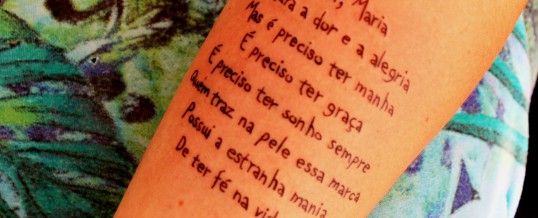 , Maria
a a dor e a alegria
Mas é preciso ter manha
É preciso ter graça
É preciso ter sonho sempre
Quem traz na pele essa marca
Possui a estranha mania
De ter fé na vid